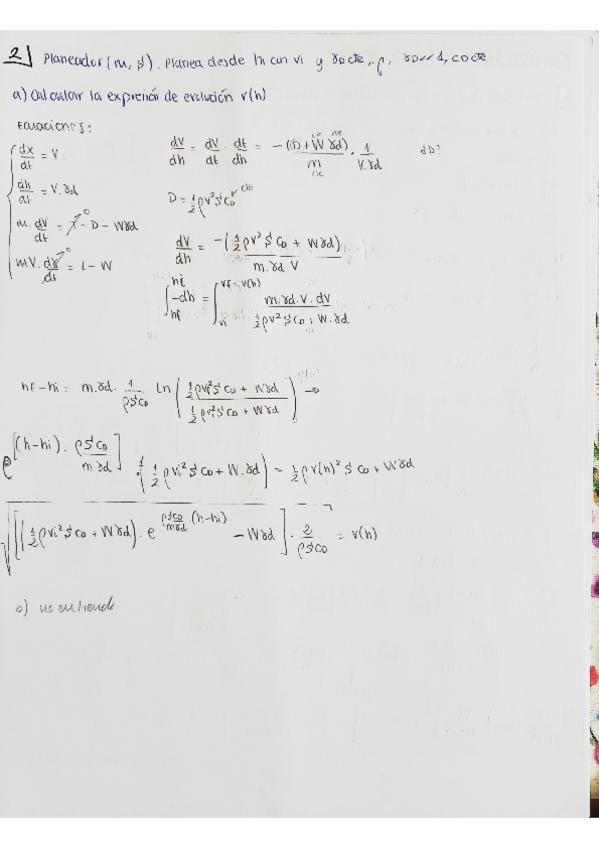 2) Planeador (m, S). Planea desde hi con vi y γd cte, ρ, γd << 1, CD cte
a) Calcular la expresión de evolución v(h)
Ecuaciones:
dx/dt = V
dh/dt = V·γd
m·dV/dt = T - D - Wγd
mV·dγ/dt = L - W
dV/dh = dV/dt · dt/dh = -(D + Wγd)/m · 1/(V·γd)
D = 1/2 ρV²SCD
dV/dh = -(1/2 ρV²SCD + Wγd)/(m·γd·V)
∫ hf hi -dh = ∫ vi vf=v(h) m·γd·V·dV/(1/2 ρV²SCD + W·γd)
hf - hi = m·γd · 1/(ρSCD) ln( (1/2 ρvi²SCD + Wγd)/(1/2 ρvf²SCD + Wγd) ) →
e^[(h-hi)·ρSCD/(mγd)] · (1/2 ρvi²SCD + W·γd) = 1/2 ρv(h)²SCD + Wγd
√([(1/2 ρvi²SCD + Wγd)·e^(ρSCD/(mγd)·(h-hi)) - Wγd]·2/(ρSCD)) = v(h)
b) no entiendo